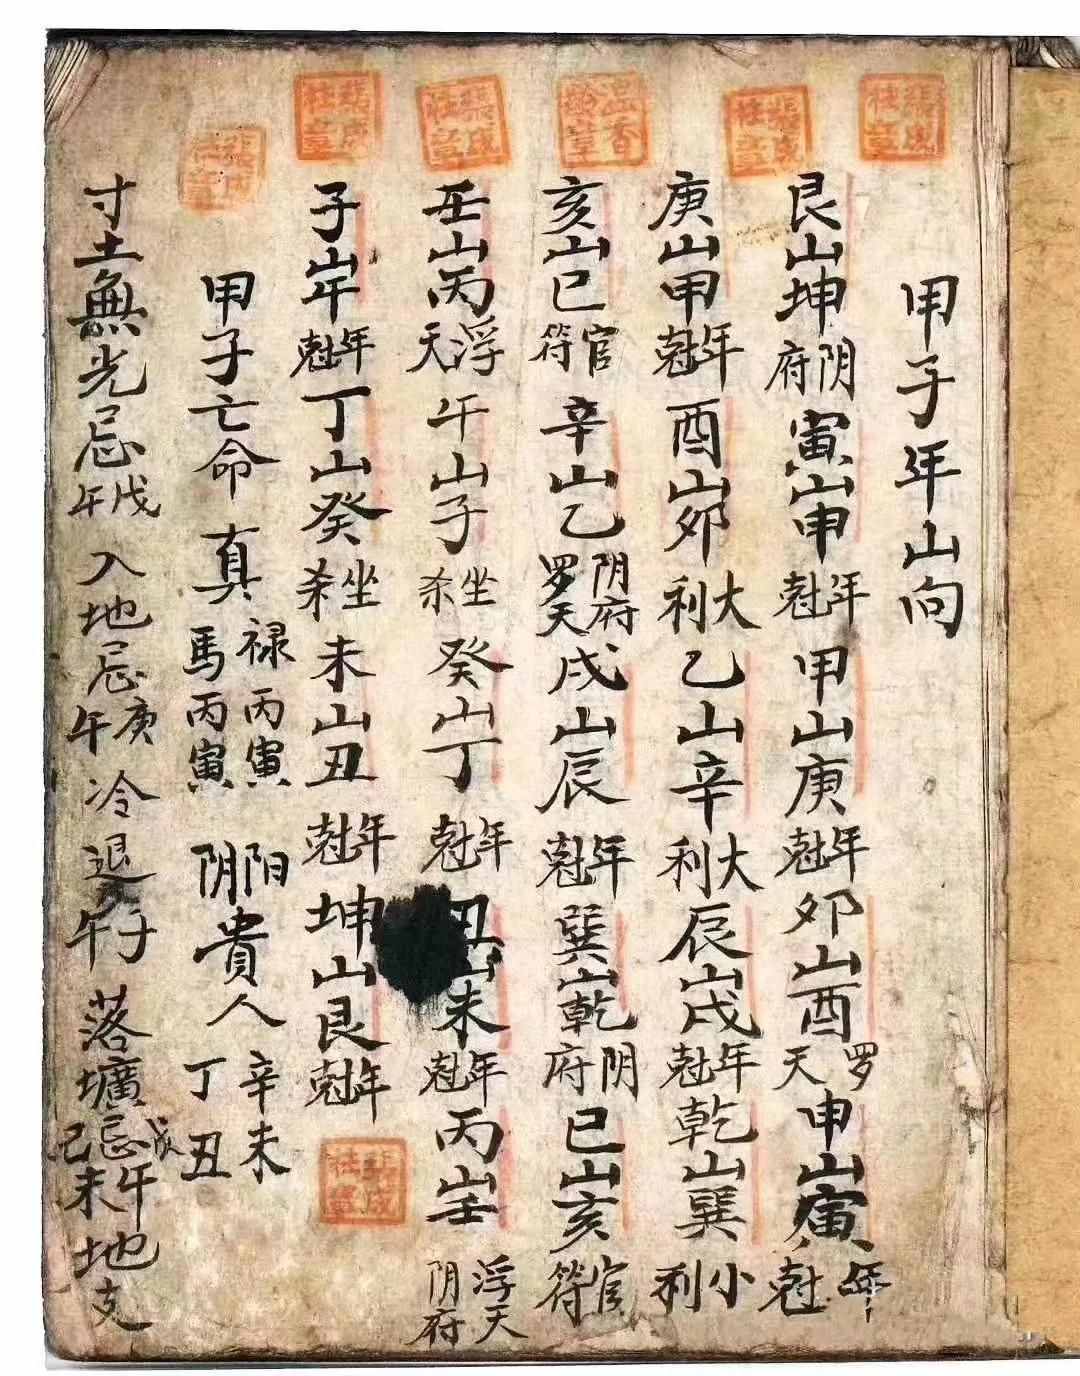 甲子年山向
艮山坤阴府寅山申年尅甲山庚年尅卯山酉罗天申山寅年尅
庚山甲年尅酉山卯大利乙山辛大利辰山戌年尅乾山巽小利
亥山巳官符辛山乙阴府罗天戌山辰年尅巽山乾阴府巳山亥官符
壬山丙浮天午山子坐杀癸山丁年尅丑山未年尅丙山壬浮天阴府
子山午年尅丁山癸坐杀未山丑年尅坤山艮年尅
甲子亡命真禄丙寅馬丙寅阳阴貴人辛未丁丑
寸土無光忌戊午入地忌庚午冷退子午落壙忌戊午己未地支